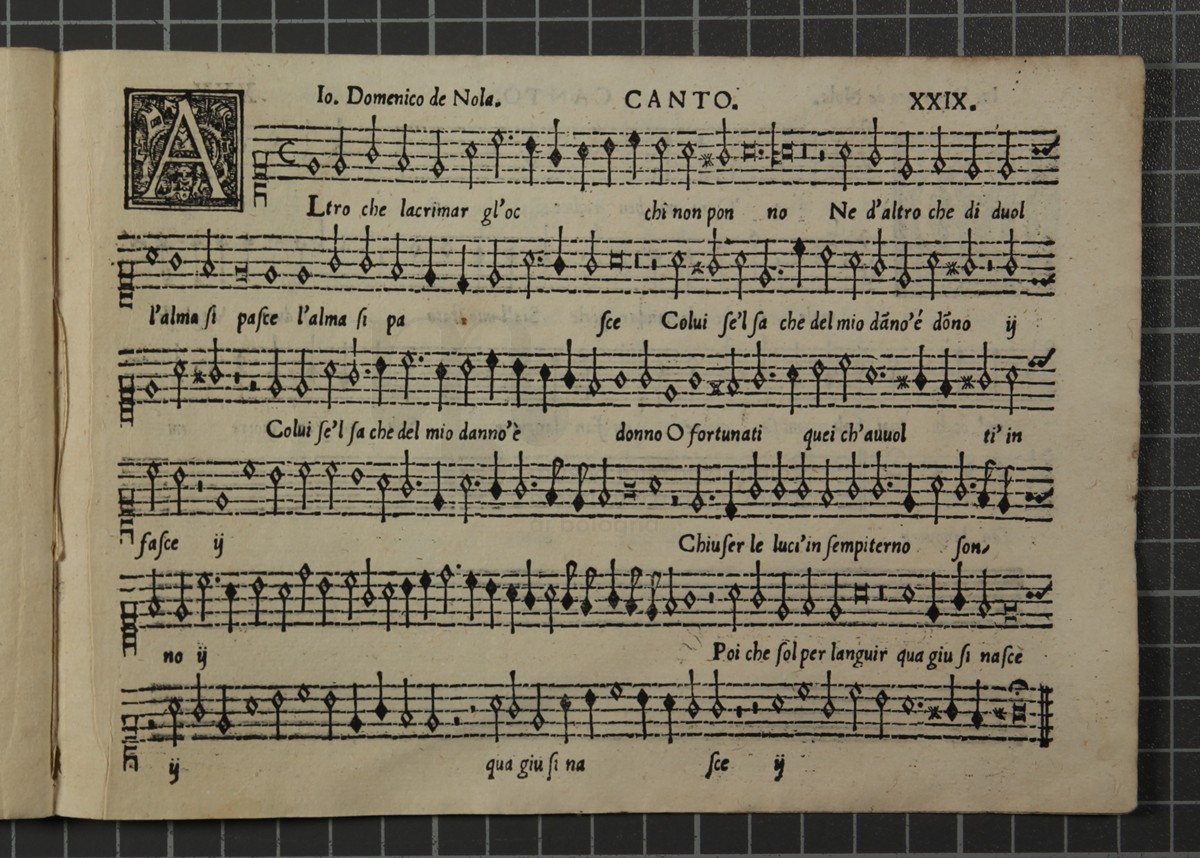 Io. Domenico de Nola. CANTO. XXIX.
A
Ltro che lacrimar gl'oc chi non pon no Ne d'altro che di duol
l'alma ſi paſce l'alma ſi pa ſce Colui ſe'l ſa che del mio dãno'é dõno ij
Colui ſe'l ſa che del mio danno'è donno O fortunati quei ch'auuol ti' in
faſce ij Chiuſer le luci'in ſempiterno ſon-
no ij Poi che ſol per languir qua giu ſi naſce
ij qua giu ſi na ſce ij